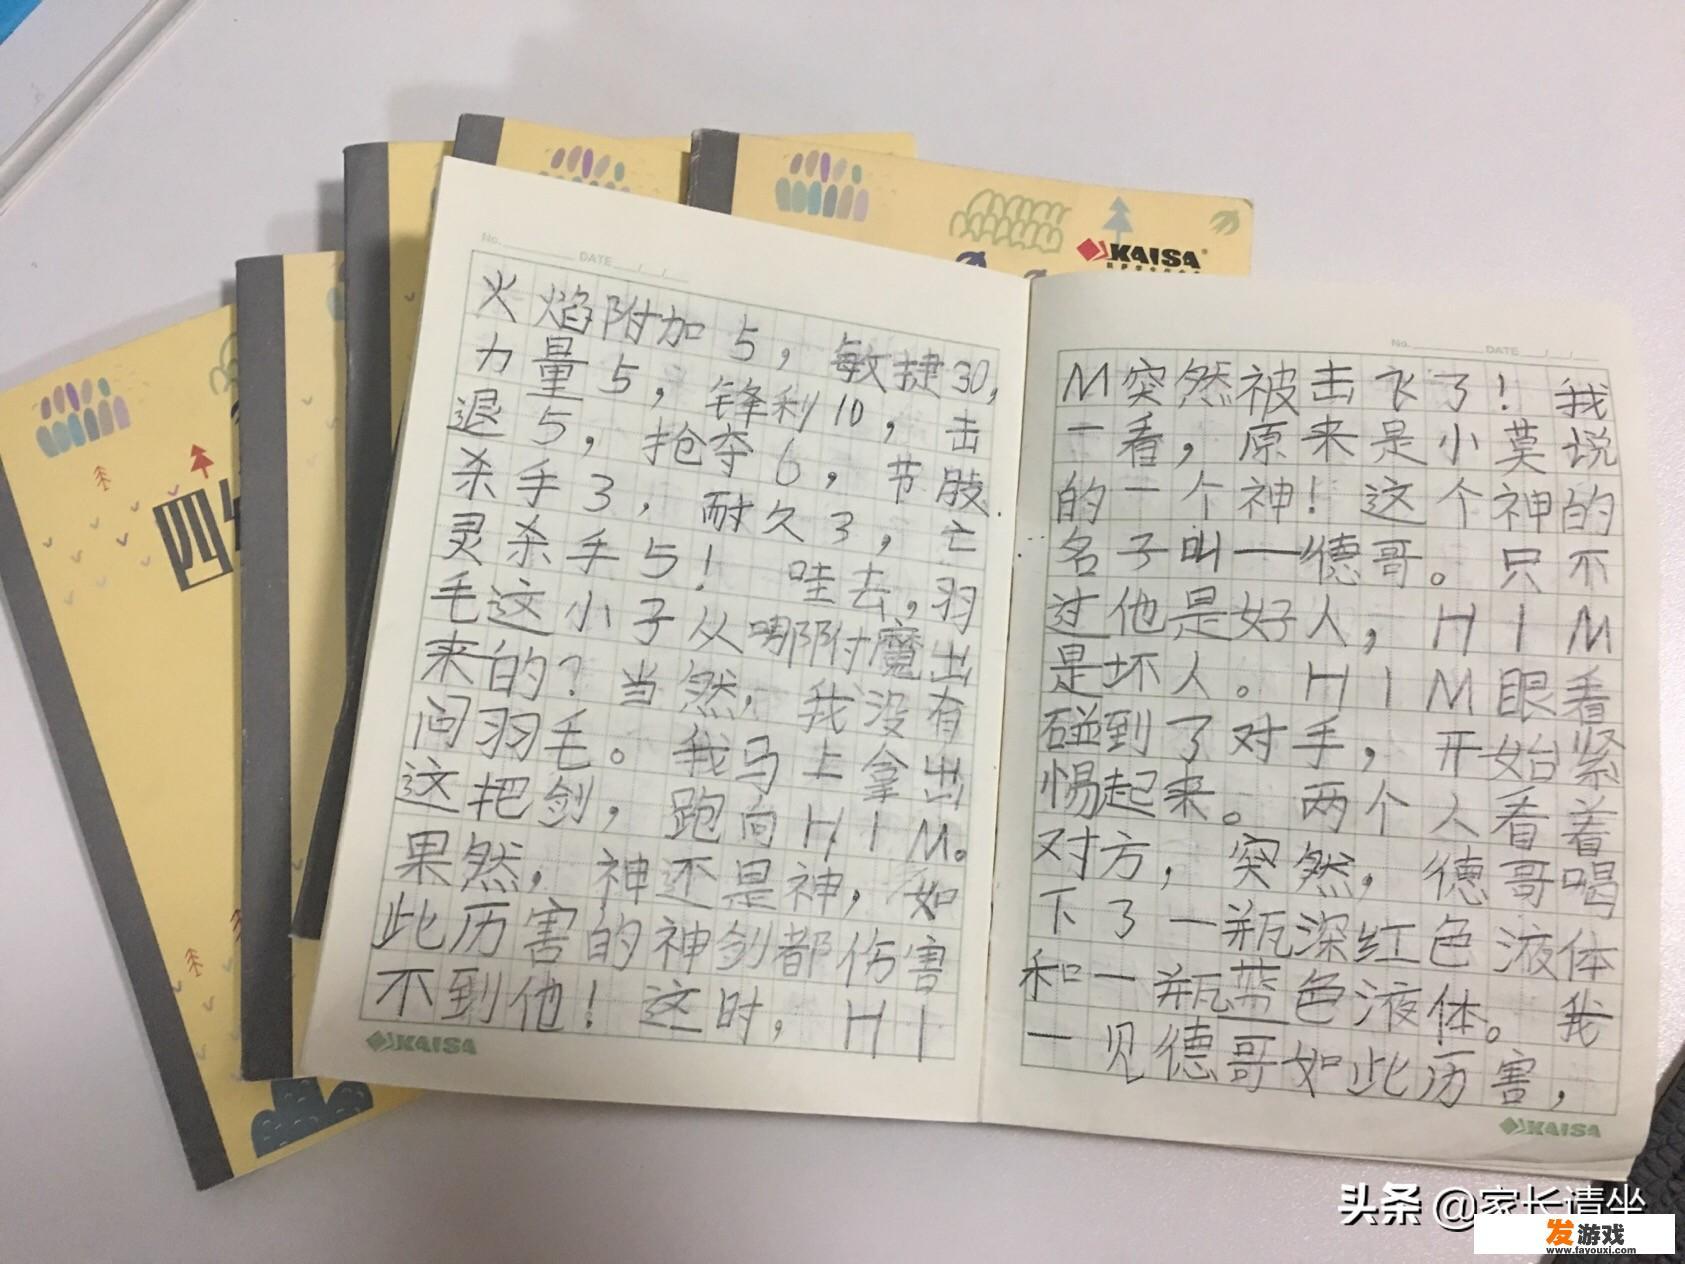 No. DATE / /
火焰附加5，敏捷30，
力量5，锋利10，击
退5，抢夺6，节肢
杀手3，耐久3，亡
灵杀手5！哇去，羽
毛这小子从哪附魔出
来的？当然，我没有
问羽毛。我马上拿出
这把剑，跑向HIM。
果然，神还是神，如
此厉害的神剑都伤害
不到他！这时，HI
KAISA
No. DATE / /
M突然被击飞了！我
一看，原来是小莫说
的一个神！这个神的
名子叫—德哥。只不
过他是好人，HIM
是坏人。HIM眼看
碰到了对手，开始紧
惕起来。两个人看着
对方，突然，德哥喝
下了一瓶深红色液体
和一瓶蓝色液体。我
一见德哥如此厉害，
KAISA
KAISA
四
头条 @家长请坐
发游戏
www.fayouxi.com